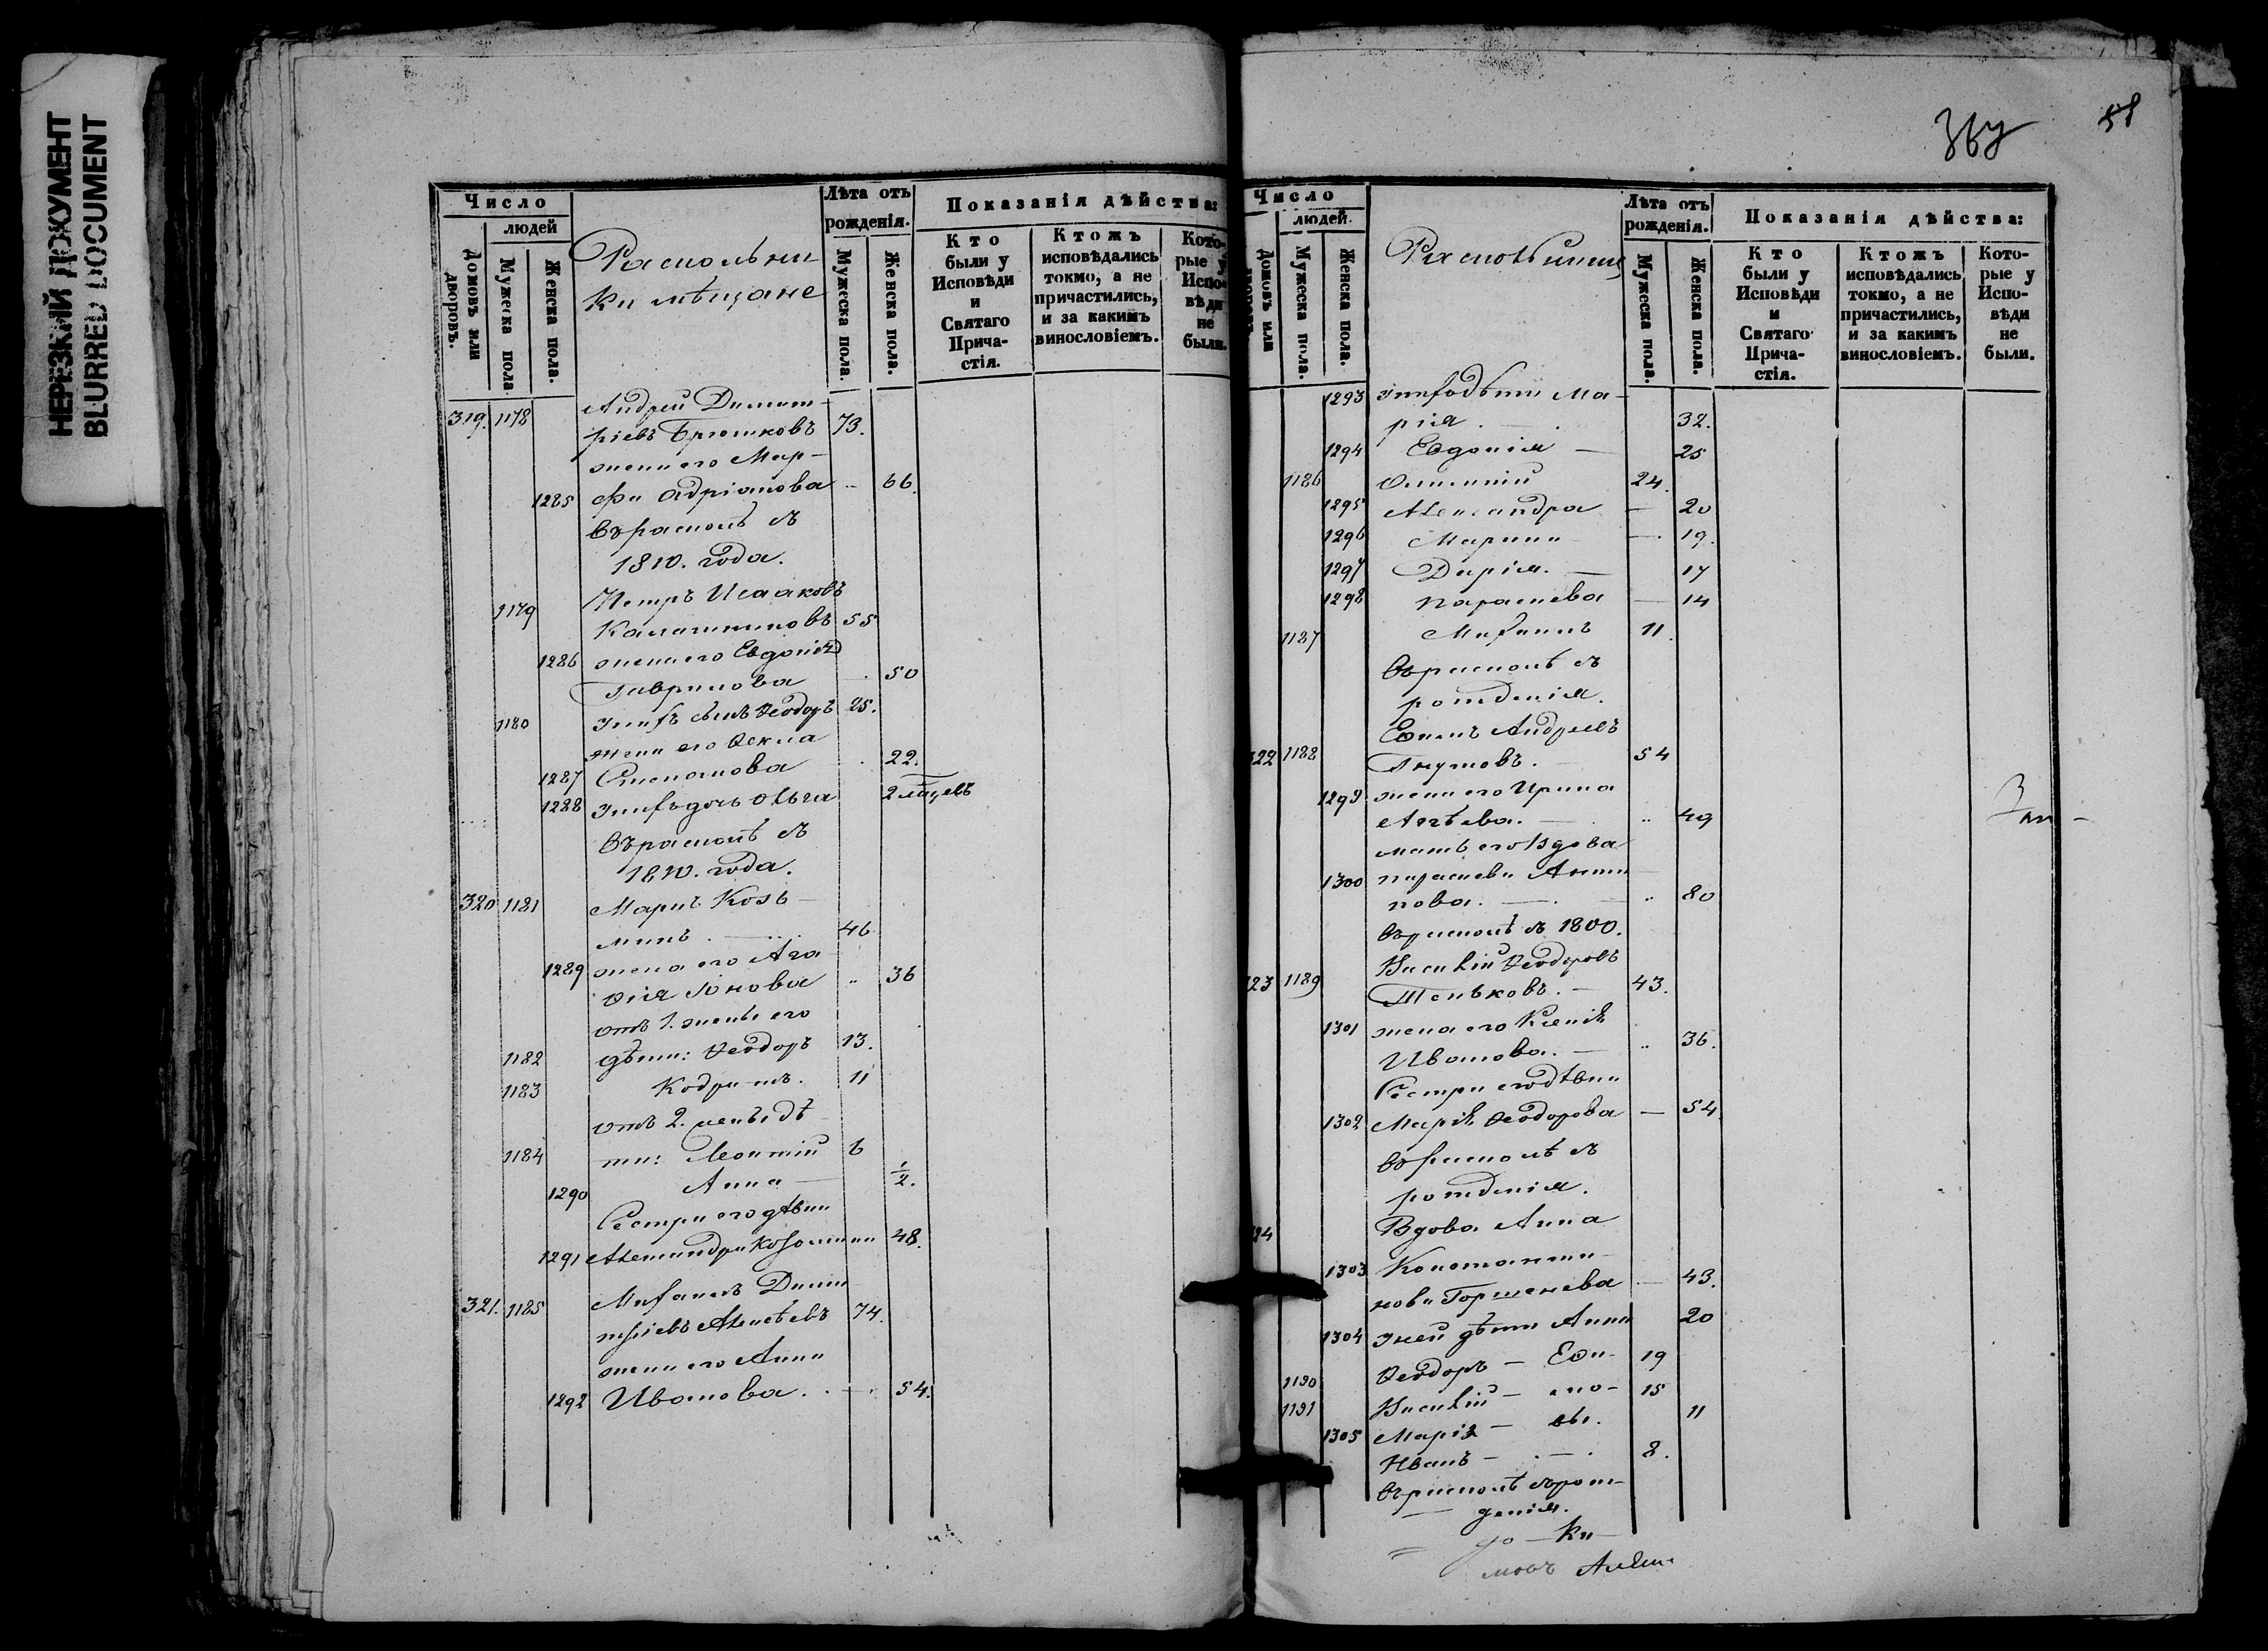 НЕРЕЗКИЙ ДОКУМЕНТ
BLURRED DOCUMENT
Число
людей
Домовъ или дворовъ.
Мужеска пола
Женска пола.
Раскольни
ки мѣщане
Лѣта отъ рожденія.
Мужеска пола.
Женска пола.
Показанія дѣйства:
Кто были у Исповѣди и Святаго Прича-стія.
Ктожъ исповѣдались токмо, а не причастились, и за какимъ винословіемъ.
Кото-рые у Испо-вѣди не были.
319. 1178 Андрей Димит-
ріевъ Брюшковъ 73.
жена его Мар-
1285 фа Адріанова 66.
въ расколѣ съ
1810. года.
1179 Петръ Исааковъ
Калашниковъ 55
1286 жена его Евдокія
Гаврилова 50
1180 у нихъ сынъ Ѳеодоръ 25.
жена его Ѳекла
1287 Степанова 22.
1288 у нихъ дочь Ольга 2 мѣсяцевъ
въ расколѣ съ
1810. года.
320 1181 Маркъ Козь-
минъ 46
1289 жена его Ага
ѳія Іонова 36
отъ 1. жены его
1182 дѣти: Ѳеодоръ 13.
1183 Кодратъ. 11
отъ 2. жены дѣ
1184 ти: Леонтій 6
1290 Анна 1/2.
Сестра его дѣвка
1291 Александра Козмина 48.
321. 1185 Михаилъ Дими
тріевъ Алексѣевъ 74.
жена его Анна
1292 Иванова. 54.
367
58
Число
людей.
Домовъ или дворовъ.
Мужеска пола.
Женска пола.
Раскольники
Лѣта отъ рожденія.
Мужеска пола.
Женска пола.
Показанія дѣйства:
Кто были у Исповѣди и Святаго Прича-стія.
Ктожъ исповѣдались токмо, а не причастились, и за какимъ винословіемъ.
Кото-рые у Испо-вѣди не были.
1293 у нихъ дѣти Ма-
рія 32.
1294 Евдокія 25
1186 24.
1295 Александра 20
1296 Марина 19.
1297 Дарія. 17
1298 Параскева 14
1187 Михаилъ 11.
въ расколѣ съ
рожденія.
Ефимъ Андреевъ
322 1188 54
1299 жена его Ирина
49
мать его вдова
1300 Параскева Анти
пова. 80
въ расколѣ съ 1800.
Василій Ѳеодоровъ
323 1189 43.
1301 жена его Ксенія
Иванова. 36.
Сестра его дѣвка
1302 Марія Ѳеодорова 54.
въ расколѣ съ
рожденія.
324 Вдова Анна
1303 Константи-
нова Горшенева 43.
1304 у ней дѣти Анна 20
1190 Ѳеодоръ 19
1191 Василій 15
1305 Марія 11
Иванъ 8.
въ расколѣ съ рож-
денія.